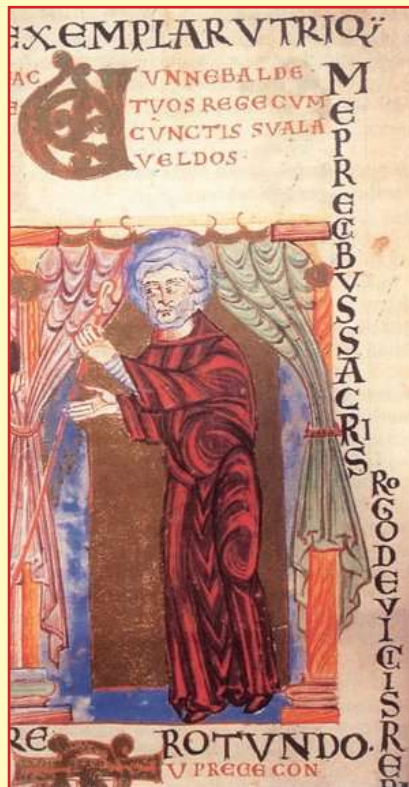 EXEMPLAR VTRIQ;
AC UNNEBALDE
E TVOS REGE CVM
CVNCTIS SVALA
VELDOS·
ME PRECIBVS SACRIS
ROGO DEVICIIS RE
RE ROTVNDO·
V PREGE CON